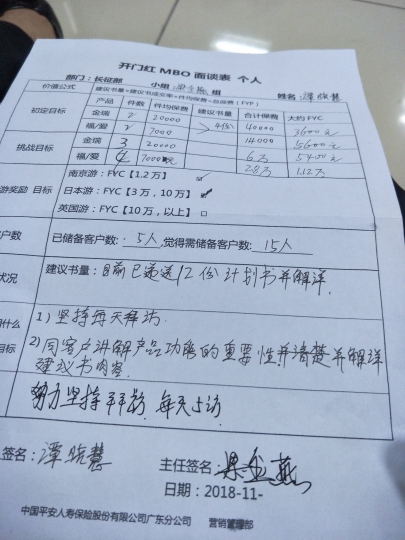 开门红 MBO 面谈表 个人
部门：长征部 小组 梁金燕 组 姓名：谭晓慧
价值公式 建议书量×建议书成交率×件均保费=总保费（FYC）
产品 件数 件均保费 建议书量 合计保费 大约 FYC
初定目标 金瑞 2 20000 40000 3600元
福/爱 2 7000 14000 5600元
挑战目标 金瑞 3 20000 6万 5400元
福/爱 4 7000元 2.8万 1.12万
游奖励 目标 南京游：FYC【1.2 万】
日本游：FYC【3 万，10 万】
英国游：FYC【10 万，以上】□
户数 已储备客户数：5人，觉得需储备客户数：15人
状况 建议书量：目前已递送12份计划书并解详
1）坚持每天拜访
目标 2）同客户讲解产品功能的重要性并清楚并解详
建议书内容
努力坚持拜访，每天5访
签名：谭晓慧 主任签名：梁金燕
日期：2018-11-
中国平安人寿保险股份有限公司广东分公司 营销管理部